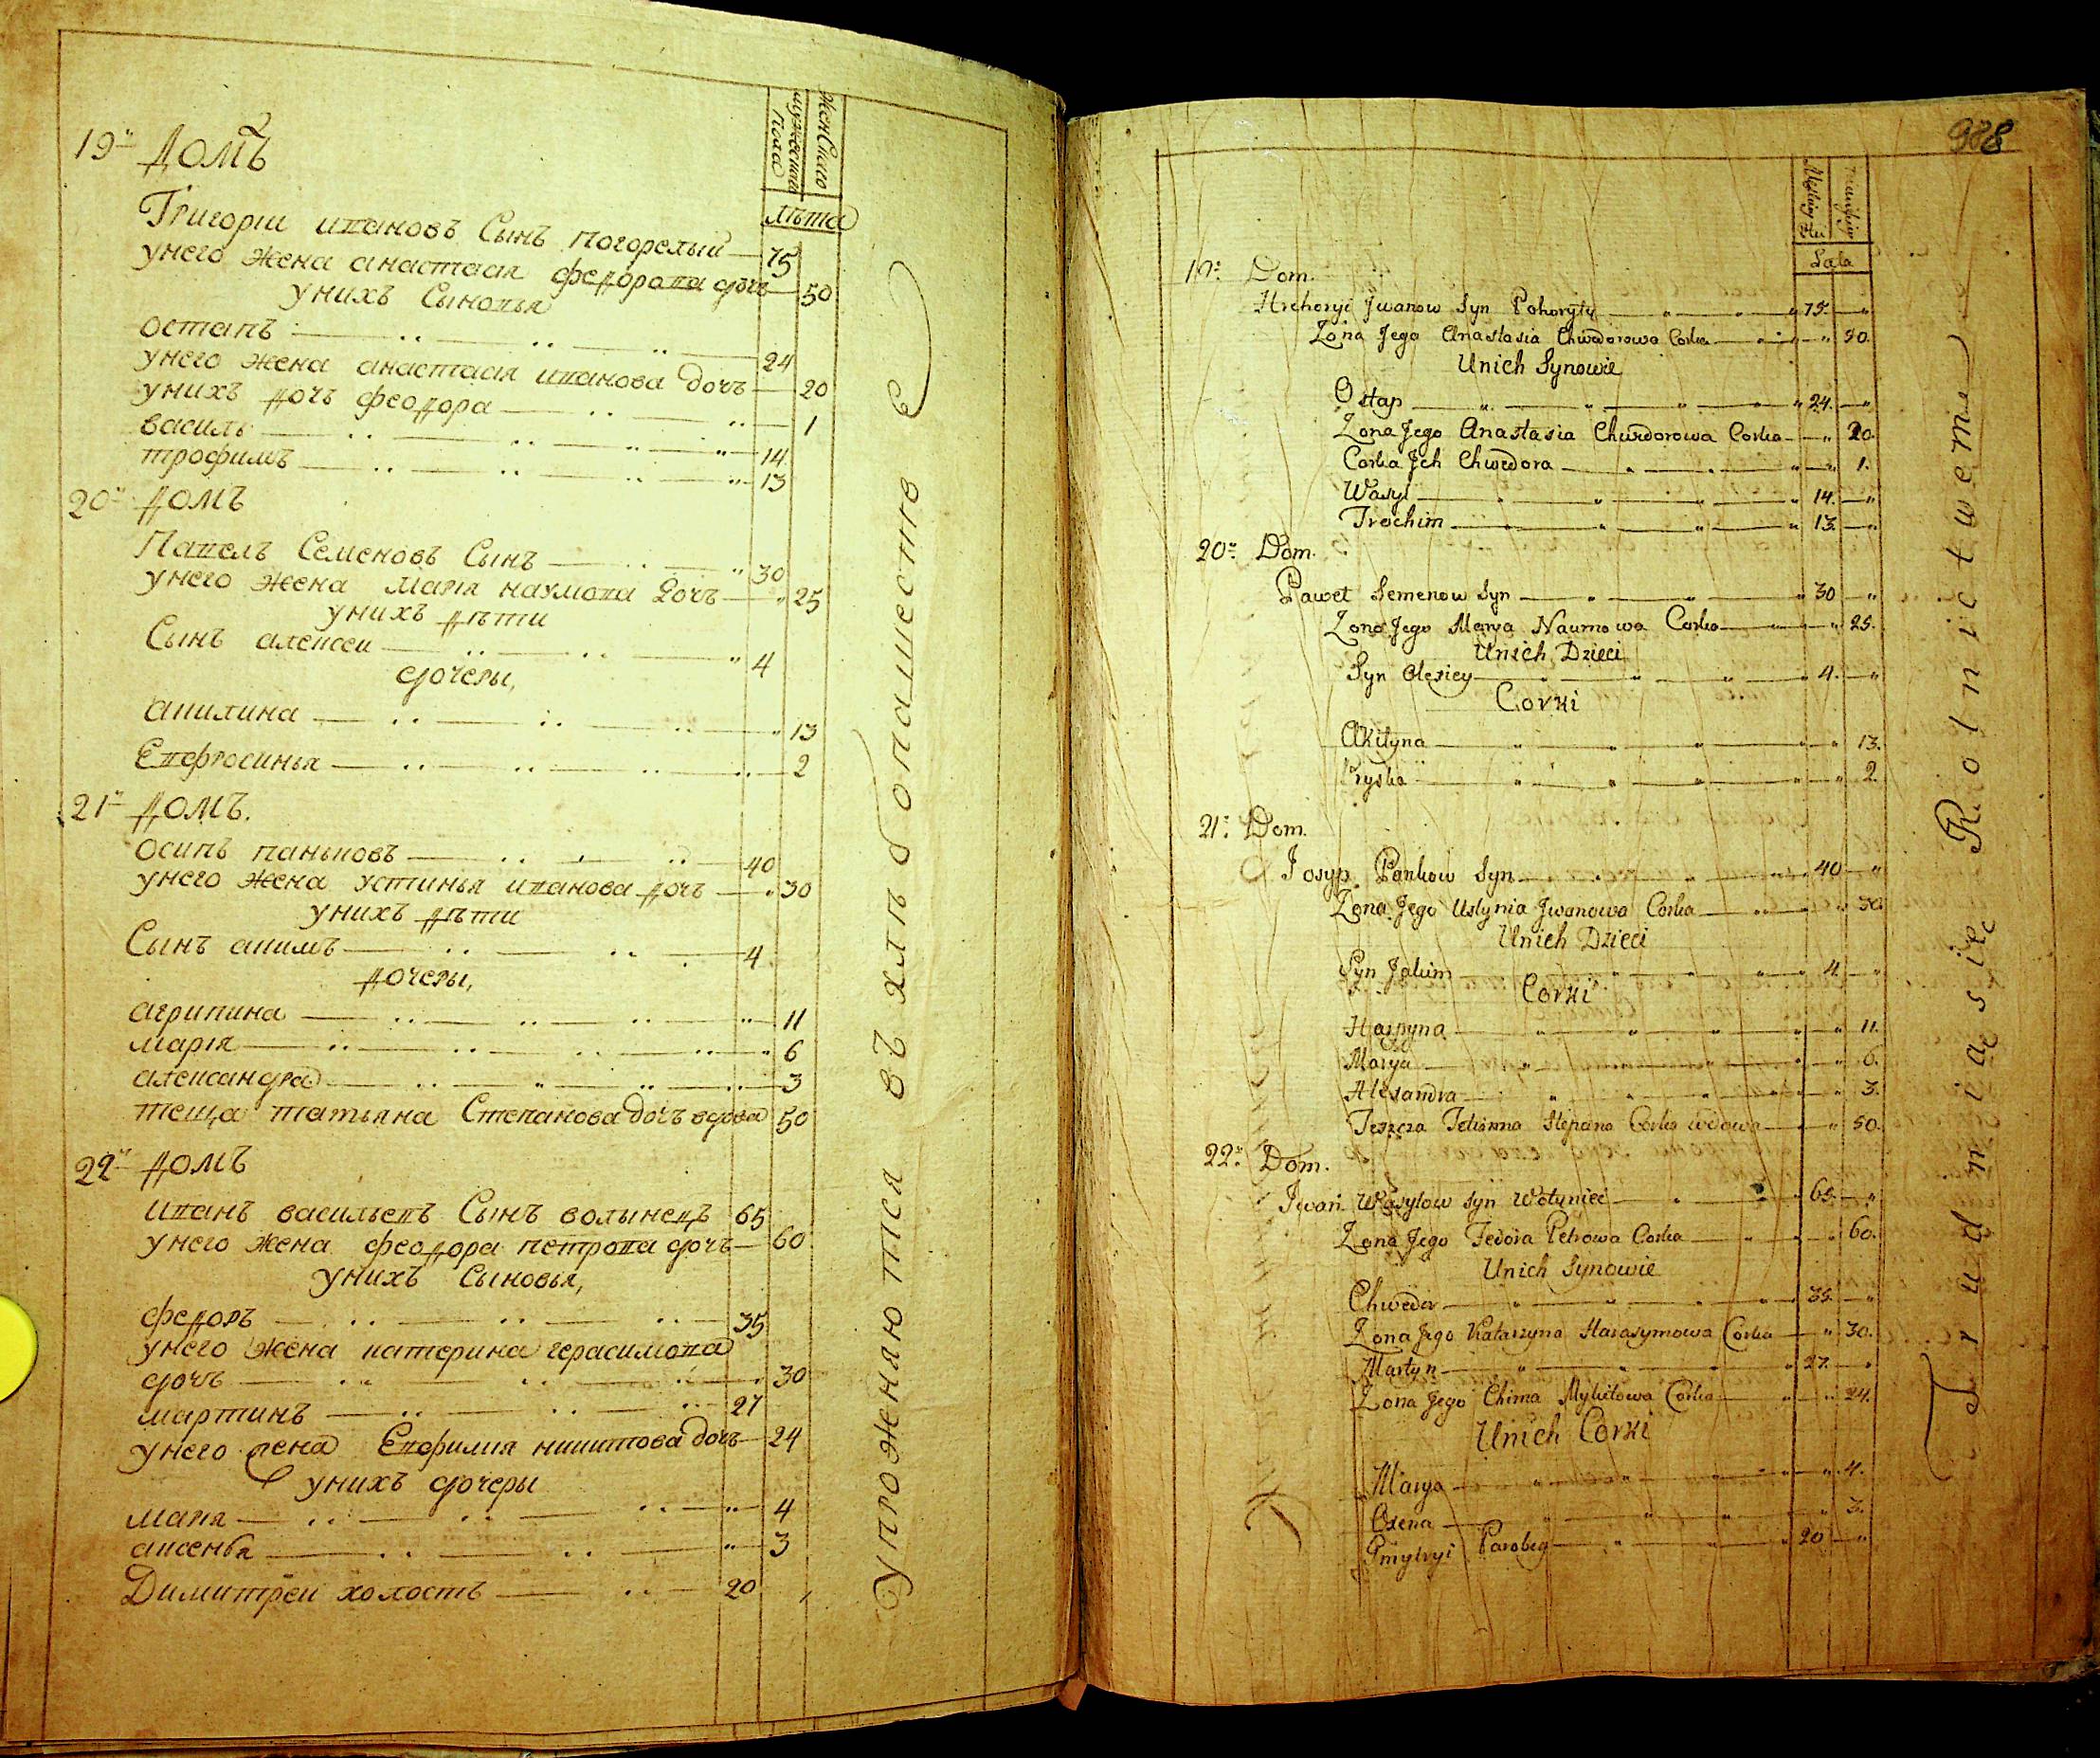 мужеска пола
женска
лѣта
19й Домъ
Григорiи ивановъ Сынъ погорелый 75
унего жена анастасiя федорова дочь 50
унихъ Сыновья
остапъ 24
унего жена анастасiя иванова дочь 20
унихъ дочь феодора 1
василь 14
трофимъ 13
20й домъ
Павелъ Семеновъ Сынъ 30
унего жена марiя наумова дочь 25
унихъ дѣти
Сынъ алексеи 4
дочеры,
акилина 13
Евфросинья 2
21й домъ.
осипъ паньковъ 40
унего жена устинья иванова дочь 30
унихъ дѣти
Сынъ акимъ 4
дочеры,
агрипина 11
марiя 6
александра 3
теща татьяна Степанова дочь вдова 50
22й домъ
иванъ васильевъ Сынъ волынецъ 65
унего жена феодора петрова дочь 60
унихъ Сыновья,
федоръ 35
унего жена катерина герасимова
дочь 30
мартинъ 27
унего жена Евфимия никитова дочь 24
унихъ дочеры
марiя 4
аксенья 3
Димитреи холостъ 20
Упрожняютса въ хлѣбопашество
988
Męskiey Płci
Lata
19. Dom.
Hrehoryi Jwanow Syn Pohoryły 75.
Żona Jego Anastasia Chwedorowa Corka 50.
Unich Synowie
Ostap 24.
Żona Jego Anastasia Chwedorowa Corka 20.
Corka Jch Chwedora 1.
Wasyl 14.
Trochim 13.
20. Dom.
Paweł Semenow Syn 30
Żona Jego Marya Naumowa Corka 25.
Unich Dzieci
Syn Olexiey 4.
Corki
Akilyna 13.
Pryska 2.
21. Dom.
Josyp Pankow Syn 40
Żona Jego Ustynia Jwanowa Corka 30.
Unich Dzieci
Syn Jakim 4.
Corki
Harpyna 11.
Marya 6.
Alexandra 3.
Teszcza Tetianna Stepana Corka wdowa 50.
22. Dom.
Jwan Wasylow Syn Wołyniec 65.
Żona Jego Fedora Petrowa Corka 60.
Unich Synowie
Chwedor 35.
Żona Jego Katarzyna Harasymowa Corka 30.
Martyn 27.
Żona Jego Chima Mykitowa Corka 24.
Unich Corki
Marya 4.
Oxena 3.
Dmytryi Parobey 20
Trudnią się Rolnictwem